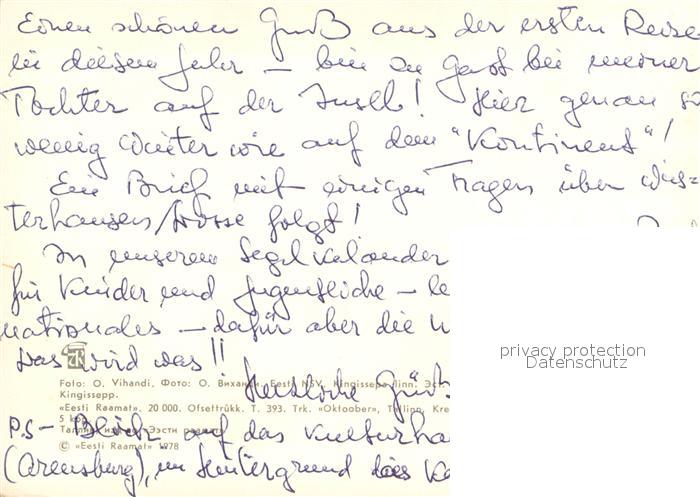 Einen schönen Gruß aus der ersten Reise
in diesem Jahr – bin zu Gast bei meiner
Tochter auf der Insel! Hier genau so
wenig Winter wie auf dem "Kontinent"!
Ein Brief mit einigen Fragen über Wus=
terhausen/Dosse folgt!
In unserem Segelkalender
für Kinder und Jugendliche – le
nationales – dafür aber die
Das wird was!!
Herzliche Grüß
Foto: O. Vihandi. Фото: О. Виханди. Eesti NSV. Kingissepa linn. Эст
Кингисепп.
«Eesti Raamat». 20 000. Ofsettrükk. T. 393. Trk. «Oktoober», Tallinn, Kre
5 kop
Таллин «Ээсти раамат»
© «Eesti Raamat» 1978
P.S – Blick auf das Kulturha
(Arensburg), im Hintergrund das
privacy protection
Datenschutz